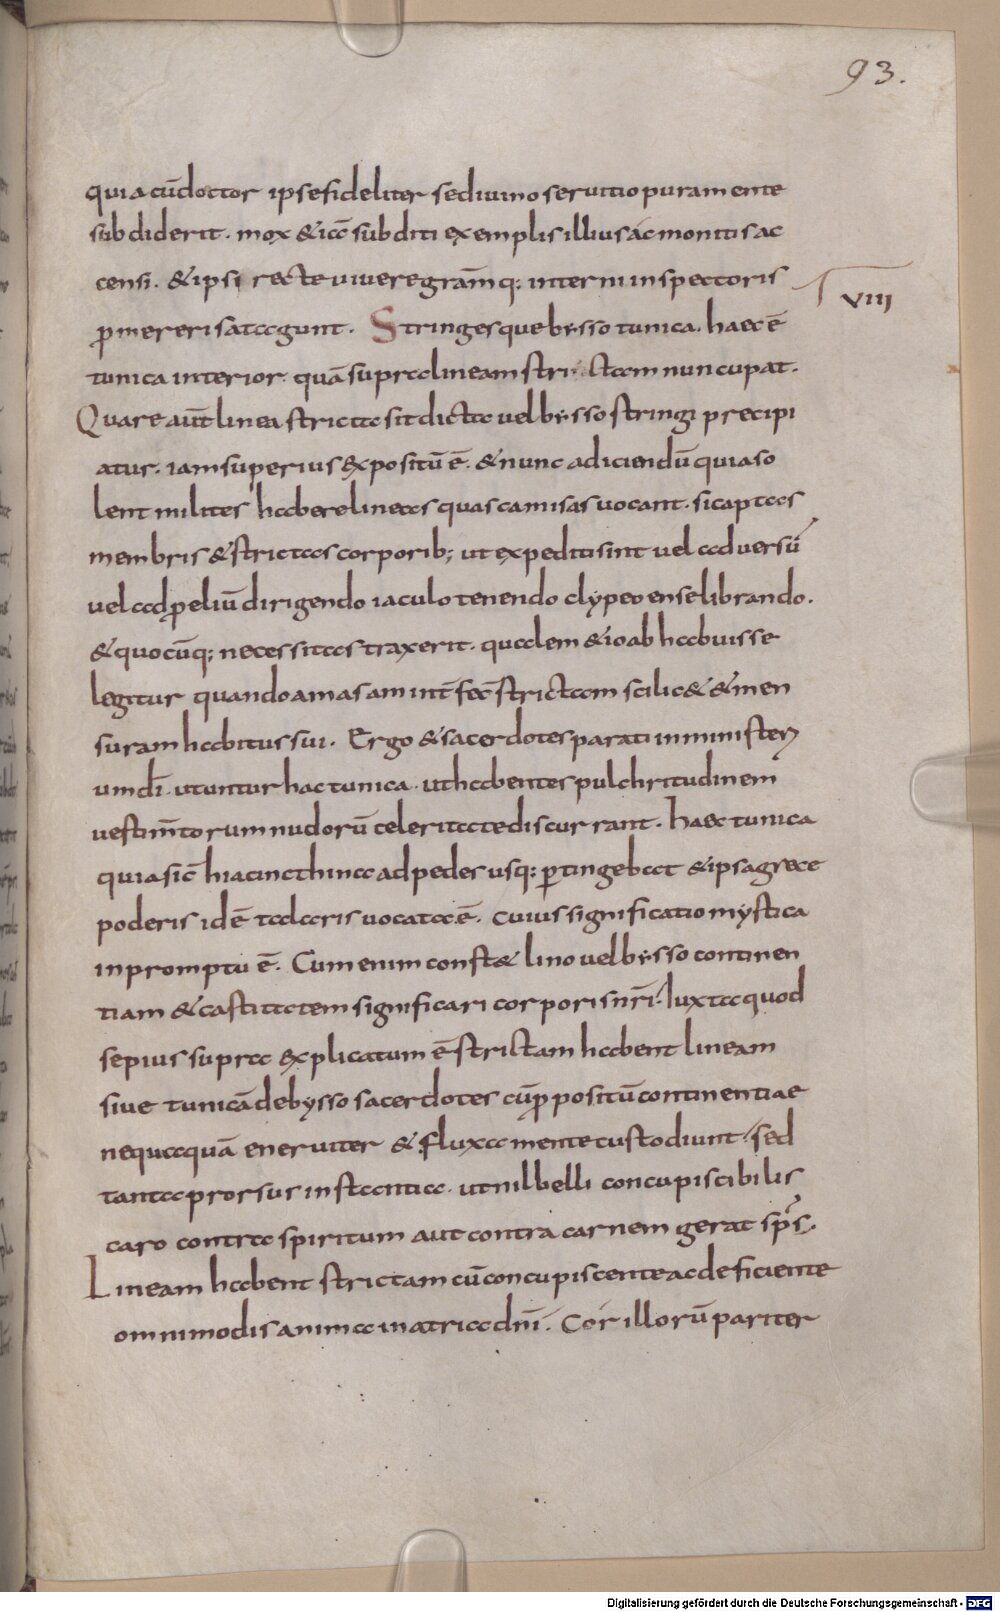 93.
quia cū doctor ipse fideliter se divino servitio pura mente
subdiderit. mox & iā subditi exemplis illius ác monitis ac
censi. & ipsi recte vivere grām q; interni inspectoris
VIII
ꝓmereri satagunt. Stringesque bysso tunica. haec ē
tunica interior. quā supra lineam strictam nuncupat.
Quare aūt linea stricta sit dicta vel bysso stringi precipi
atur. iam superius expositū ē. & nunc adiciendū quia so
lent milites habere lineas quas camisas vocant. sic aptas
membris & strictas corporib; ut expediti sint vel ad versū
vel ad ꝓeliū dirigendo iaculo tenendo clypeo ense librando.
& quocūq; necessitas traxerit. qualem & ioab habuisse
legitur quando amasam intfec̄ strictam scilic& & men
suram habitus sui. Ergo & sacerdotes parati in ministeri
um dī. utuntur hac tunica. ut habentes pulchritudinem
vestim̄torum nudorū celeritate discurrant. haec tunica
quia sic̄ hiacinthina ad pedes usq; ꝑtingebat & ipsa grece
poderis id ē talaris vocata ē. cuius significatio mystica
in promptu ē. Cum enim const& lino vel bysso continen
tiam & castitatem significari corporis nr̄i. Iuxta quod
sepius supra explicatum ē strictam habent lineam
sive tunicā de bysso sacerdotes cū ꝓpositū continentiae
nequaquā enerviter & fluxa mente custodiunt. sed
tanta prorsus instantia. ut nil belli concupiscibilis
caro contra spiritum aut contra carnem gerat sp̄s.
Lineam habent strictam cū concupiscente ac deficiente
omnimodis anima in atria dn̄i. Cór illorū pariter
Digitalisierung gefördert durch die Deutsche Forschungsgemeinschaft - DFG